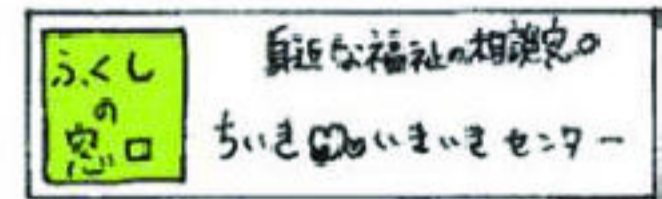 ふくし
の
窓口
身近な福祉の相談窓口
ちいきいきいきセンター